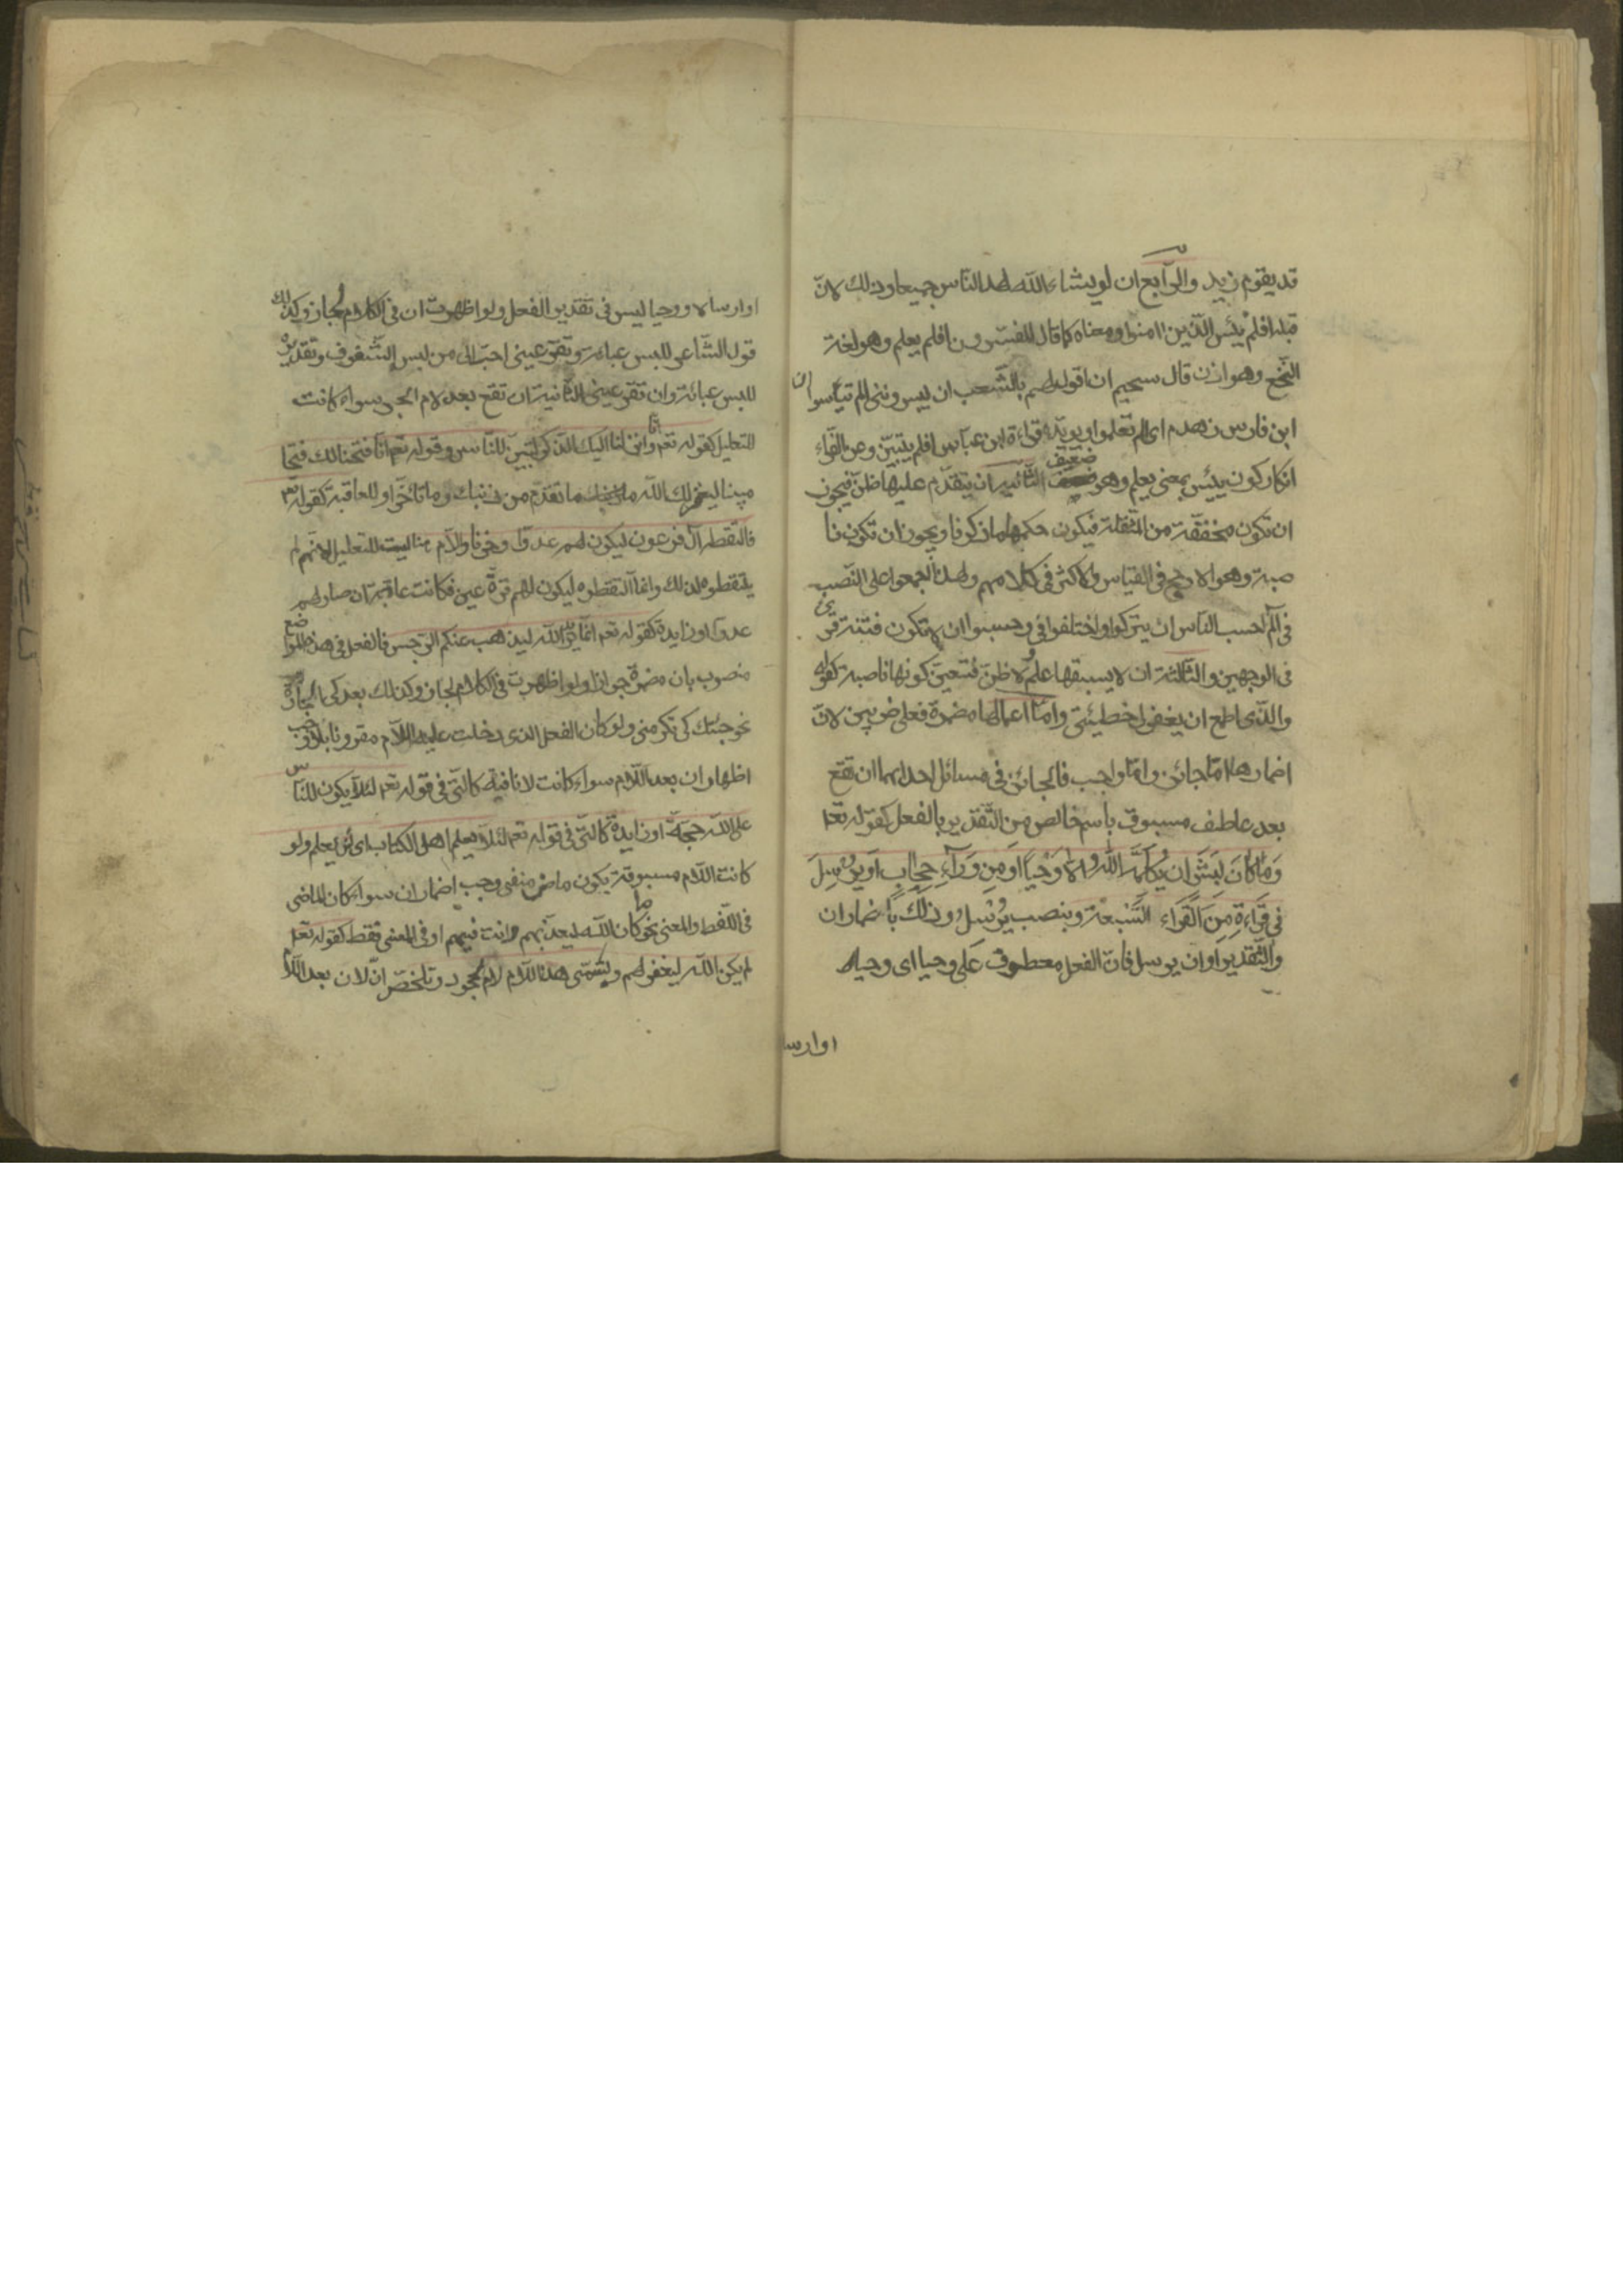 قد يقوم زيد والرابع ان لو يشاء الله لهدا الناس جميعا وذلك لان
قبله افلم يئس الذين امنوا ومعناه كما قال المفسرون افلم يعلم وهو لغة
النخع وهوازن قال سحيم ان اقول لهم بالشعب ان ييسرونني الم تيأسوا ان
ابن فارس زهدم اى الم تعلموا ويؤيده قراءة ابن عباس افلم يتبين وعن الفراء
انكار كون ييئس بمعنى يعلم وهو ضعيف الثانية ان يتقدم عليها ظن فيجوز
ان تكون مخففة من المثقلة فيكون حكمها ما ذكرنا ويجوز ان تكون نا
صبة وهو الارجح فى القياس والاكثر فى كلامهم ولهذا اجمعوا على النصب
فى الم احسب الناس ان يتركوا واختلفوا فى وحسبوا ان لا تكون فتنة قرئ
فى الوجهين والثالثة ان لا يسبقها علم ولا ظن فتتعين كونها ناصبة كقوله
والذى اطمع ان يغفر لى خطيئتى واما اعمالها مضمرة فعلى ضربين لان
اضمارها اما جائز واما واجب فالجائز فى مسائل احداهما ان تقع
بعد عاطف مسبوق باسم خالص من التقدير بالفعل كقوله تعا
وَمَا كَانَ لِبَشَرٍ ان يُكَلِّمَهُ اللهُ الا وَحْيًا اَو مِن وَرَآءِ حِجَابٍ اَو يُرْسِلَ
فى قراءةِ مِنَ القراء السبعة وبنصب يُرْسِلَ وذلك باضمار ان
والتقدير او ان يرسل فان الفعل معطوف على وحيا اى وحيا
اوارسا
اوارسالا ووحيا ليس فى تقدير الفعل ولو اظهرت ان فى الكلام لجاز وكذلك
قول الشاعر للبس عباءة وتقر عينى احب الى من لبس الشفوف وتقديره
للبس عبائة وان تقر عينى الثانية ان تقع بعد لام الجر سواء كانت
للتعليل كقوله تعا وانا انزلنا اليك الذكر لتبين للناس وقوله تعا انا فتحنا لك فتحا
مبينا ليغفر لك الله ما تقدم من ذنبك وما تأخر او للعاقبة كقوله تع
فالتقطه آل فرعون ليكون لهم عدوا وحزنا واللام هنا ليست للتعليل لانهم لم
يلتقطوه لذلك وانما التقطوه ليكون لهم قرة عين فكانت عاقبته ان صار لهم
عدوا او زايدة كقوله تعا انما يريد الله ليذهب عنكم الرجس فالفعل فى هذه المواضع
منصوب بان مضمرة جوازا ولو اظهرت فى الكلام لجاز وكذلك بعد كى الجارة
نحو جئتك كى تكرمنى ولو كان الفعل الذى دخلت عليه اللام مقرونا بلا وجب
اظهار ان بعد اللام سواء كانت لا نافية كالتى فى قوله تعا لئلا يكون للناس
على الله حجة او زايدة كالتى فى قوله تعا لئلا يعلم اهل الكتاب اى لئن يعلم ولو
كانت اللام مسبوقة بكون ماض منفى وجب اضمار ان سواء كان الماضى
فى اللفظ والمعنى نحو ما كان الله ليعذبهم وانت فيهم او فى المعنى فقط كقوله تعا
لم يكن الله ليغفر لهم وتسمى هذه اللام لام الجحود وتلخص ان لان بعد اللام